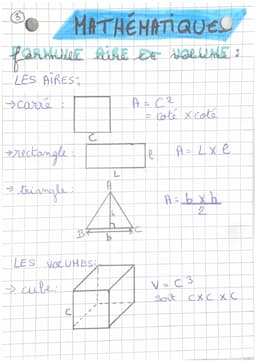 ③
MATHÉMATIQUES
FORMULE AIRE ET VOLUME :
LES AIRES :
→ carré :
A = C²
= coté × coté
C
→ rectangle :
l
A = L × l
L
→ triangle :
A
A = b × h
2
h
B
C
b
LES VOLUMES :
→ cube :
V = C³
soit C × C × C
C